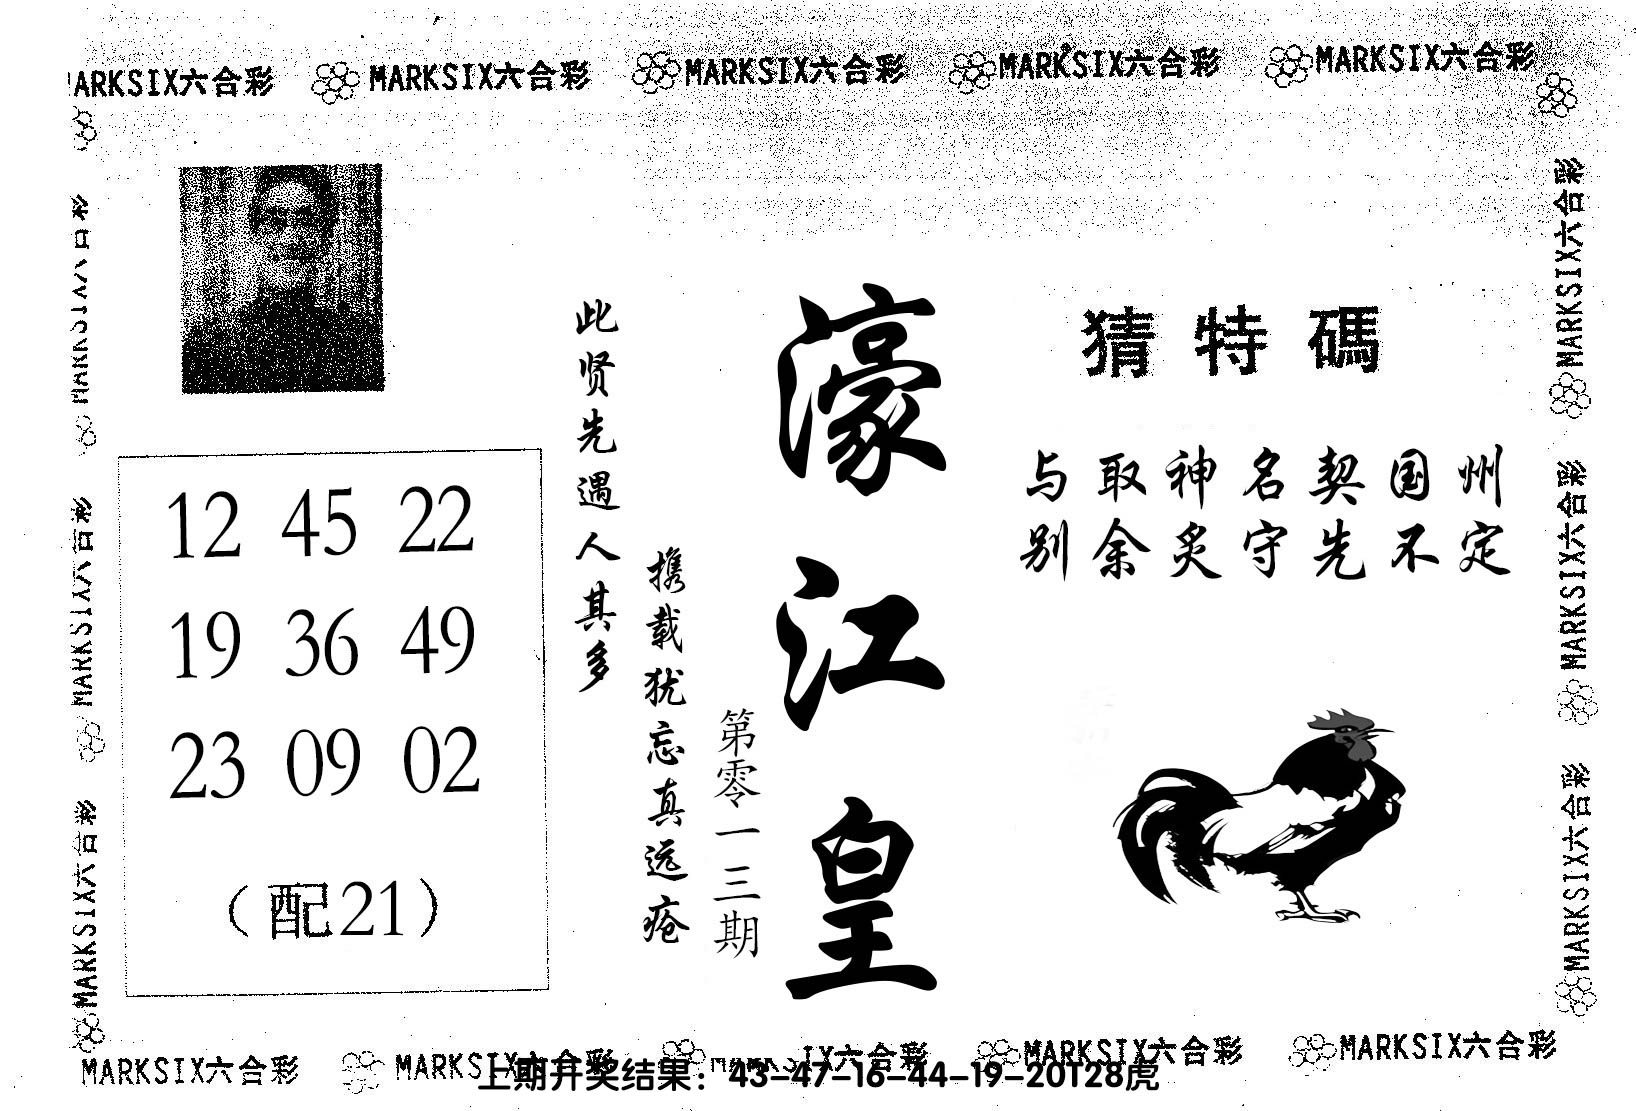 MARKSIX六合彩 MARKSIX六合彩 MARKSIX六合彩 MARKSIX六合彩 MARKSIX六合彩
MARKSIX六合彩
MARKSIX六合彩
MARKSIX六合彩
猜特碼
与取神名契国州
别余炙守先不定
濠江皇
第零一三期
此贤先遇人其多
携载犹忘真远疮
12 45 22
19 36 49
23 09 02
（配21）
MARKSIX六合彩
MARKSIX六合彩
MARKSIX六合彩
MARKSIX六合彩 MARKSIX六合彩 MARKSIX六合彩 MARKSIX六合彩 MARKSIX六合彩
上期开奖结果：43-47-16-44-19-20T28虎